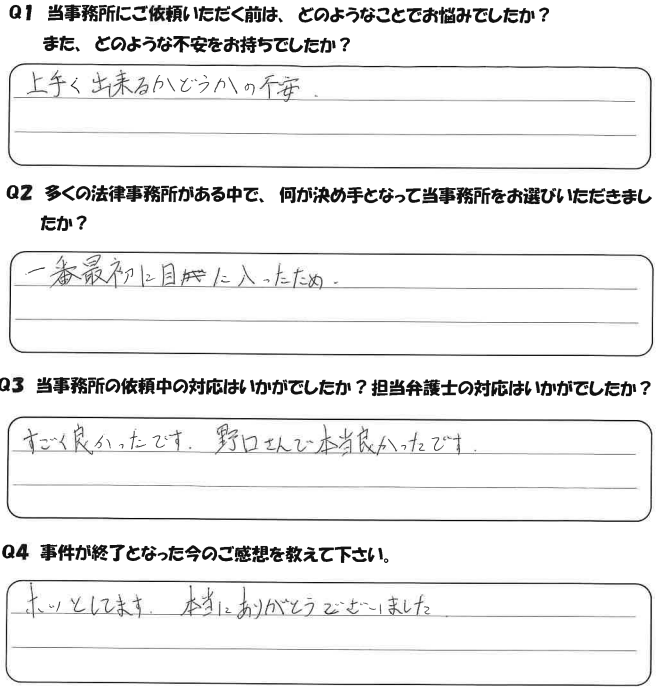 Q1 当事務所にご依頼いただく前は、どのようなことでお悩みでしたか？
また、どのような不安をお持ちでしたか？
上手く出来るかどうかの不安.
Q2 多くの法律事務所がある中で、何が決め手となって当事務所をお選びいただきまし
たか？
一番最初に目に入ったため.
Q3 当事務所の依頼中の対応はいかがでしたか？担当弁護士の対応はいかがでしたか？
すごく良かったです. 野口さんで本当良かったです.
Q4 事件が終了となった今のご感想を教えて下さい。
ホッとしてます. 本当にありがとうございました